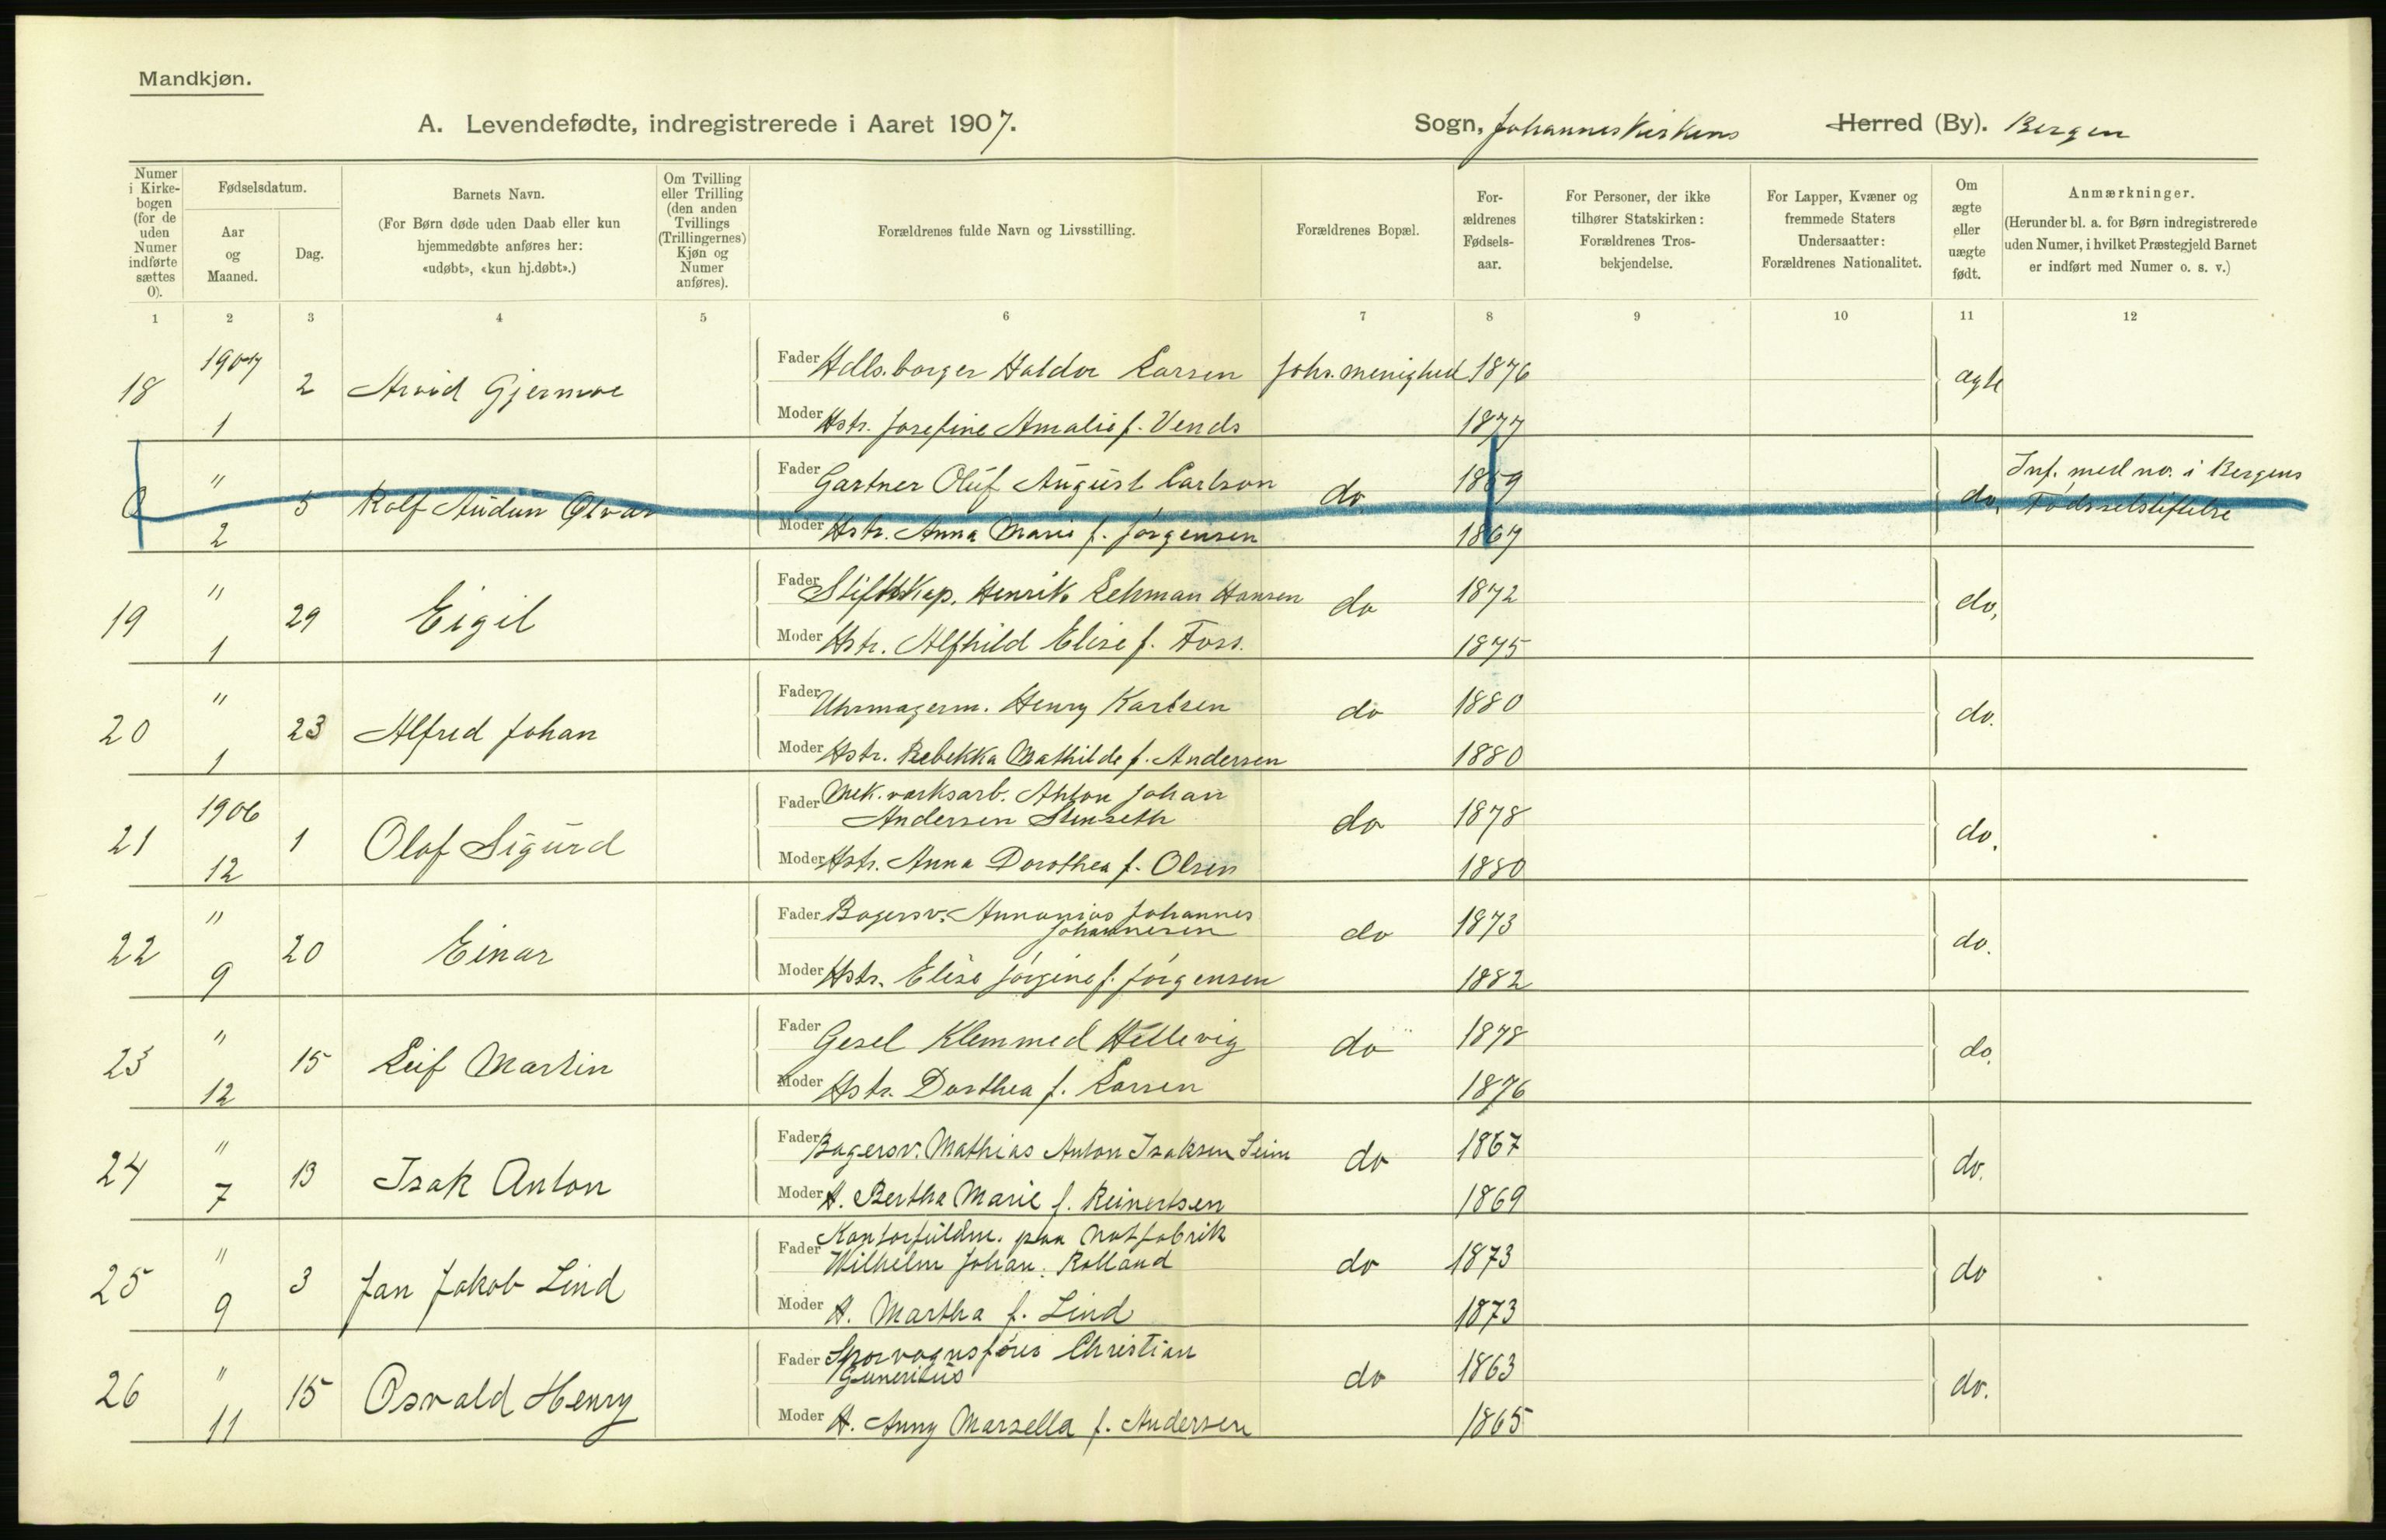 Mandkjøn.
A. Levendefødte, indregistrerede i Aaret 1907.
Sogn, Johanneskirkens Herred (By). Bergen
Numer i Kirkebogen (for de uden Numer indførte sættes 0).
Fødselsdatum.
Aar og Maaned.
Dag.
Barnets Navn.
(For Børn døde uden Daab eller kun hjemmedøbte anføres her: «udøbt», «kun hj.døbt».)
Om Tvilling eller Trilling (den anden Tvillings (Trillingernes) Kjøn og Numer anføres).
Forældrenes fulde Navn og Livsstilling.
Forældrenes Bopæl.
Forældrenes Fødselsaar.
For Personer, der ikke tilhører Statskirken: Forældrenes Trosbekjendelse.
For Lapper, Kvæner og fremmede Staters Undersaatter: Forældrenes Nationalitet.
Om ægte eller uægte født.
Anmærkninger.
(Herunder bl. a. for Børn indregistrerede uden Numer, i hvilket Præstegjeld Barnet er indført med Numer o. s. v.)
1 2 3 4 5 6 7 8 9 10 11 12
18 1907 1 2 Arvid Gjermoe Fader Hdls.borger Haldor Larsen Johs. menighed 1876 ægte
Moder Hstr. Josefine Amalie f. Vends 1877
0 " 2 5 Rolf Audun Fader Gartner Oluf August Carlson do. 1869 do. Inf. med no. i Bergens
Moder Hstr. Anna Marie f. Jørgensen 1867 Fødselsstiftelse
19 " 1 29 Eigil Fader Stiftskap. Henrik Lehman Hansen do 1872 do.
Moder Hstr. Alfhild Elise f. Foss. 1875
20 " 1 23 Alfred Johan Fader Uhrmagerm. Henry Karlsen do 1880 do.
Moder Hstr. Rebekka Mathilde f. Andersen 1880
21 1906 12 1 Olaf Sigurd Fader Mek. værksarb. Anton Johan
Andersen Stenseth do 1878 do.
Moder Hstr. Anna Dorothea f. Olsen 1880
22 " 9 20 Einar Fader Bagersv. Annanias Johannes
Johannesen do 1873 do.
Moder Hstr. Elise Jørgine f. Jørgensen 1882
23 " 12 15 Leif Martin Fader Gesel Klemmed Hellevig do 1878 do.
Moder Hstr. Dorthea f. Larsen 1876
24 " 7 13 Isak Anton Fader Bagersv. Mathias Anton Isaksen Seim do 1867 do.
Moder H. Bertha Marie f. Reinertsen 1869
25 " 9 3 Jan Jakob Lind Fader Kontorfuldm. paa Notfabrik
Wilhelm Johan Rolland do 1873 do
Moder H. Martha f. Lind 1873
26 " 11 15 Osvald Henry Fader Sporvognsfører Christian
Guneriius do 1863 do.
Moder H. Anny Marsella f. Andersen 1865